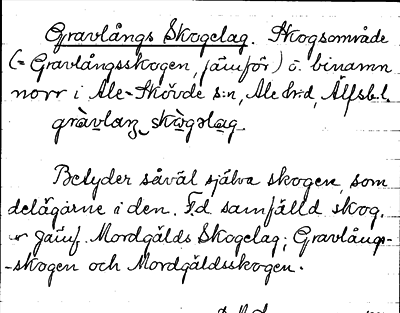 Gravlångs Skogelag. Skogsområde
(= Gravlångsskogen, jämför) o. binamn
norr i Ale-Skövde s:n, Ale hrd, Älfsb.l.
gràvlaŋ skògslag
Betyder såväl själva skogen, som
delägarne i den. F.d. samfälld skog.
Jämf. Mordgälds Skogelag; Gravlångs-
-skogen och Mordgäldsskogen.